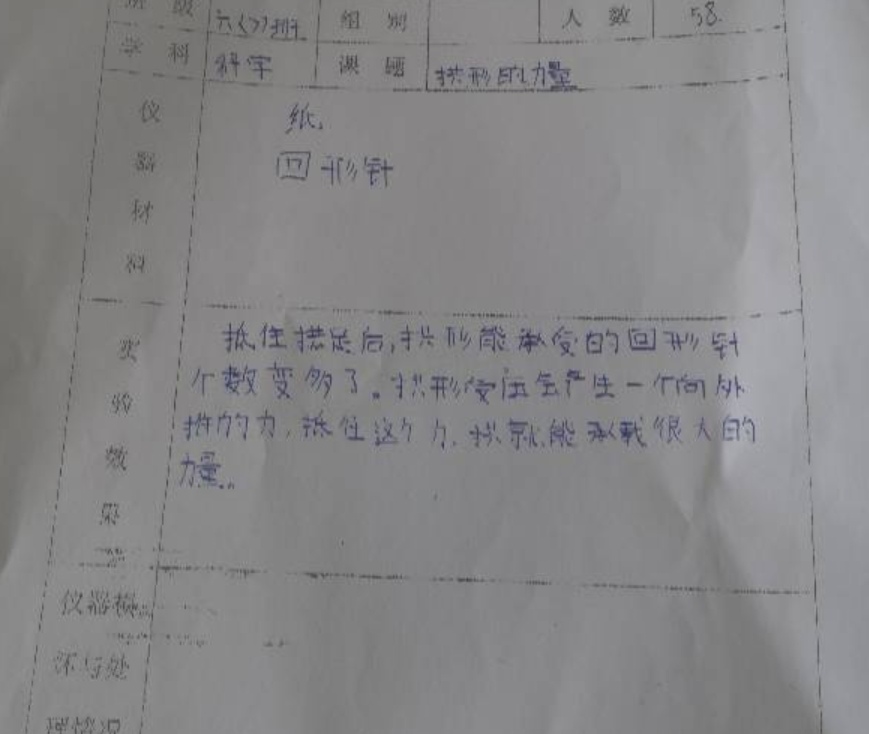 班 级 六(3)班 组 别 人 数 58.
学 科 科学 课 题 拱形的力量
仪器材料
纸、
回形针
实验数
抵住拱足后,拱形能承受的回形针
个数变多了。拱形受压会产生一个向外
推的力,抵住这个力,拱就能承载很大的
力量。
仪器损
坏与处
理情况